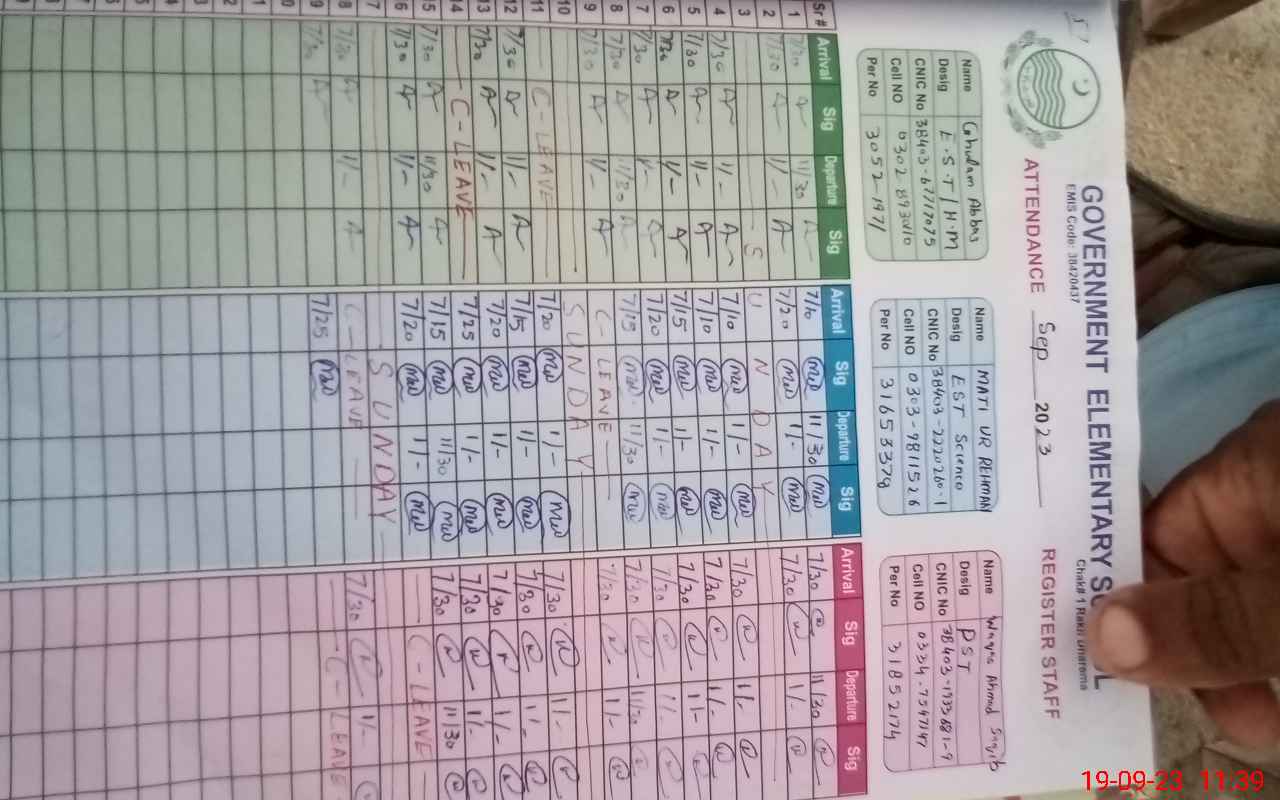 57
GOVERNMENT ELEMENTARY
EMIS Code: 38420437
Chak# 1 Rakh Dharema
ATTENDANCE Sep 2023 REGISTER STAFF
Name Ghulam Abbas
Desig E.S.T/H.M
CNIC No
Cell NO
Per No 3052-1971
Name MATI UR REHMAN
Desig EST Science
CNIC No 38403-2220260-1
Cell NO 0303-9811526
Per No 31653379
Name Waqas Ahmad Saqib
Desig PST
CNIC No 38403-1933681-9
Cell NO 0334-7547147
Per No 31852174
Sr# Arrival Sig Departure Sig Arrival Sig Departure Sig Arrival Sig Departure Sig
1 7/30 A 11/30 A 7/10 MW 11/30 MW 7/30 W 11/30 W
2 7/30 A 1/- A 7/20 MW 1/- MW 7/30 W 1/- W
3 S U N D A Y
4 7/30 A 1/- A 7/10 MW 1/- MW 7/30 W 1/- W
5 7/30 A 1/- A 7/10 MW 1/- MW 7/30 W 1/- W
6 7/30 A 1/- A 7/15 MW 1/- MW 7/30 W 1/- W
7 7/30 A 1/- A 7/20 MW 1/- MW 7/30 W 1/- W
8 7/30 A 11/30 A 7/15 MW 11/30 MW 7/30 W 11/30 W
9 7/30 A 1/- A C-LEAVE 7/30 W 1/- W
10 SUNDAY
11 C-LEAVE 7/20 MW 1/- MW 7/30 W 1/- W
12 7/30 A 1/- A 7/15 MW 1/- MW 7/30 W 1/- W
13 7/30 A 1/- A 7/20 MW 1/- MW 7/30 W 1/- W
14 C-LEAVE 7/25 MW 1/- MW 7/30 W 1/- W
15 7/30 A 11/30 A 7/15 MW 11/30 MW 7/30 W 11/30 W
16 7/30 A 1/- A 7/20 MW 1/- MW C-LEAVE
17 SUNDAY
18 7/30 A 1/- A C-LEAVE 7/30 W 1/- W
19 7/30 A 7/25 MW C-LEAVE
19-09-23 11:39